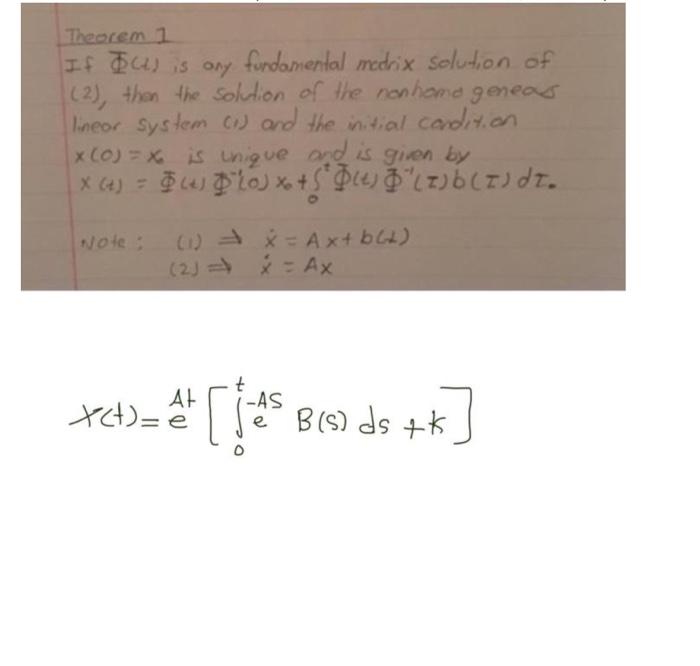 Theorem 1
If Φ(t) is any fundamental matrix solution of
(2), then the solution of the nonhomogeneous
linear system (1) and the initial condition
x(0) = x₀ is unique and is given by
x(t) = Φ(t) Φ⁻¹(0) x₀ + ∫₀ᵗ Φ(t) Φ⁻¹(τ) b(τ) dτ.
Note : (1) ⇒ ẋ = Ax + b(t)
(2) ⇒ ẋ = Ax
X(t) = e^{At} [ ∫₀ᵗ e^{-AS} B(s) ds + k ]